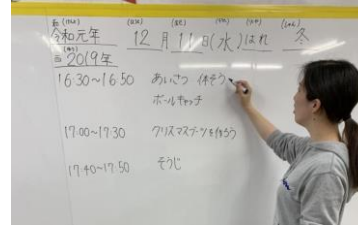 令和元年 12月11日(水) はれ 冬
2019年
16:30～16:50 あいさつ 体そう
ボールキャッチ
17:00～17:30 クリスマスブーツを作ろう
17:40～17:50 そうじ